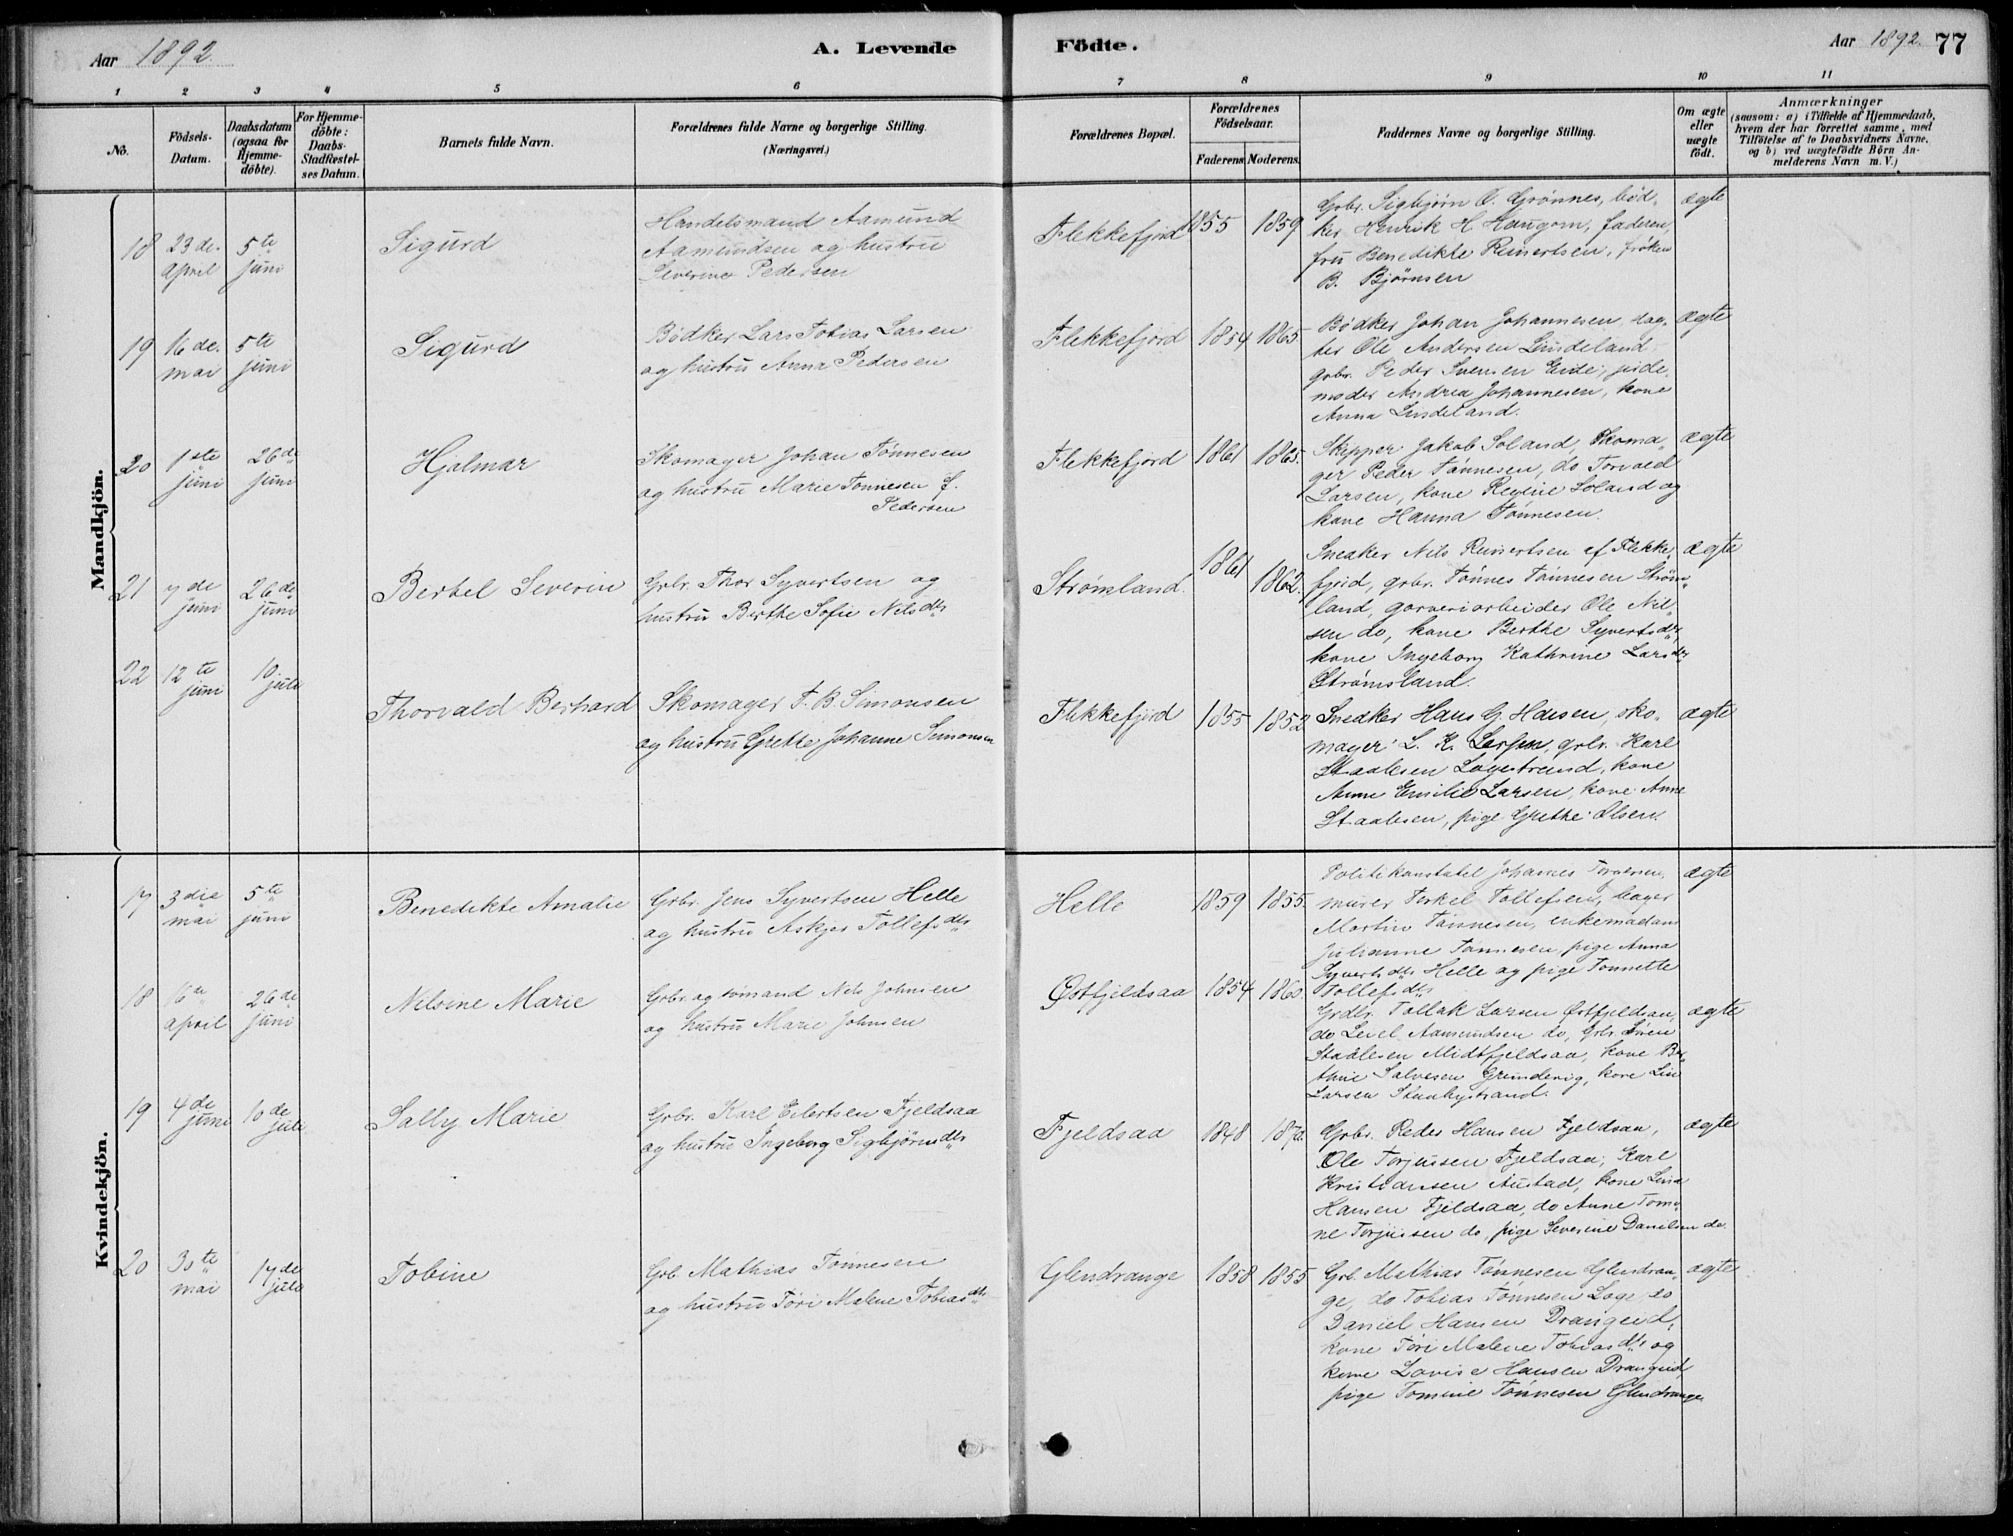 Aar 1892.
A. Levende Födte.
Aar 1892. 77
1 2 3 4 5 6 7 8 9 10 11
No.
Födsels-Datum.
Daabsdatum (ogsaa for Hjemme-döbte).
For Hjemme-döbte: Daabs-Stadfæstel-ses Datum.
Barnets fulde Navn.
Forældrenes fulde Navne og borgerlige Stilling. (Næringsvei.)
Forældrenes Bopæl.
Forældrenes Födselsaar.
Faderens. Moderens.
Faddernes Navne og borgerlige Stilling.
Om ægte eller uægte födt.
Anmærkninger (saasom: a) i Tilfælde af Hjemmedaab, hvem der har forrettet samme, med Tilföielse af to Daabsvidners Navne, og b) ved uægtefödte Börn An-melderens Navn m. V.)
Mandkjön.
18 23de april 5te juni Sigurd
Handelsmand Aamund
Aamundsen og hustru
Severine Pedersen
Flekkefjord 1855 1859
Gbr. Sigbjørn O. Grønnes, bød-
ker Henrik H Haugom, faderen,
fru Benedikte Reinertsen, frøken
B. Bjørnsen
ægte
19 16de mai 5te juni Sigurd
Bødker Lars Tobias Larsen
og hustru Anna Pedersen
Flekkefjord 1854 1865
Bødker Johan Johannesen,
Ole Andersen Lindeland
gbr. Peder Svensen Eide, jorde-
moder Andrea Johannesen, kone
Anna Lindeland.
ægte
20 1ste juni 26de juni Hjalmar
Skomager Johan Tønnesen
og hustru Marie Tønnesen f.
Pedersen
Flekkefjord 1861 1865.
Skipper Jakob Soland, Skoma-
ger Peder Tønnesen, do Torvald
Larsen, kone Regine Soland og
kone Hanna Tønnesen.
ægte
21 7de juni 26de juni Bertel Severin
Gbr. Thor Syvertsen og
hustru Berthe Sofie Nilsdtr
Strømland. 1861 1862.
Snedker Nils Reinertsen af Flekke-
fjord, gbr. Tønnes Tønnesen Strøm-
land, garveriarbeider Ole Nil-
sen do, kone Berthe Syvertsdtr,
kone Ingeborg Kathrine Larsdtr
Strømsland.
ægte
22 12te juni 10 juli Thorvald Berhard
Skomager T. B. Simonsen
og hustru Grethe Johanne Simonsen
Flekkefjord 1855 1852
Snedker Hans G. Hansen, sko-
mager L. K. Larsen, gbr. Karl
Staalesen Løgestrand, kone
Anne Emilie Larsen, kone Anne
Staalesen, pige Grethe Olsen.
ægte
Kvindekjön.
17 3die mai 5te juni Benedikte Amalie
Gbr. Jens Syvertsen Helle
og hustru Askjer Tollefsdtr
Helle 1859 1855.
Politikonstabel Johannes Torgersen,
murer Terkel Tollefsen, bager
Martin Tønnesen, enkemadam
Julianne Tønnesen, pige Anna
Syvertsdtr Helle og pige Tonnette
Tollefsdtr
ægte
18 16de april 26de juni Nilsine Marie
Gbr. og sømand Nils Johnsen
og hustru Marie Johnsen
Østfjeldsaa 1854 1860.
Grdbr. Tollak Larsen Østfjeldsaa,
do Leiel Aamundsen do, gbr. Søren
Staalesen Midtfjeldsaa, kone Ber-
thine Salvesen Grundevig, kone Line
Larsen
ægte
19 4de juni 10de juli Sally Marie
Gbr. Karl Eilertsen Fjeldsaa
og hustru Ingeborg Sigbjørnsdtr
Fjeldsaa 1848 1870.
Gbr. Peder Hansen Fjeldsaa,
Ole Torjussen Fjeldsaa, Karl
Kristiansen Austad, kone Lina
Hansen Fjeldsaa, do Anne Tomi-
ne Torjussen do, pige Severine Danielsen do.
ægte
20 30te mai 17de juli Tobine
Gbr Mathias Tønnesen
og hustru Tori Malene Tobiasdtr
Glendrange 1858 1855
Gbr. Mathias Tønnesen Glendran-
ge, do Tobias Tønnesen Loge, do
Daniel Hansen Drangeid,
kone Tori Malene Tobiasdtr og
kone Lovise Hansen Drangeid,
pige Tomine Tønnesen Glendrange
ægte